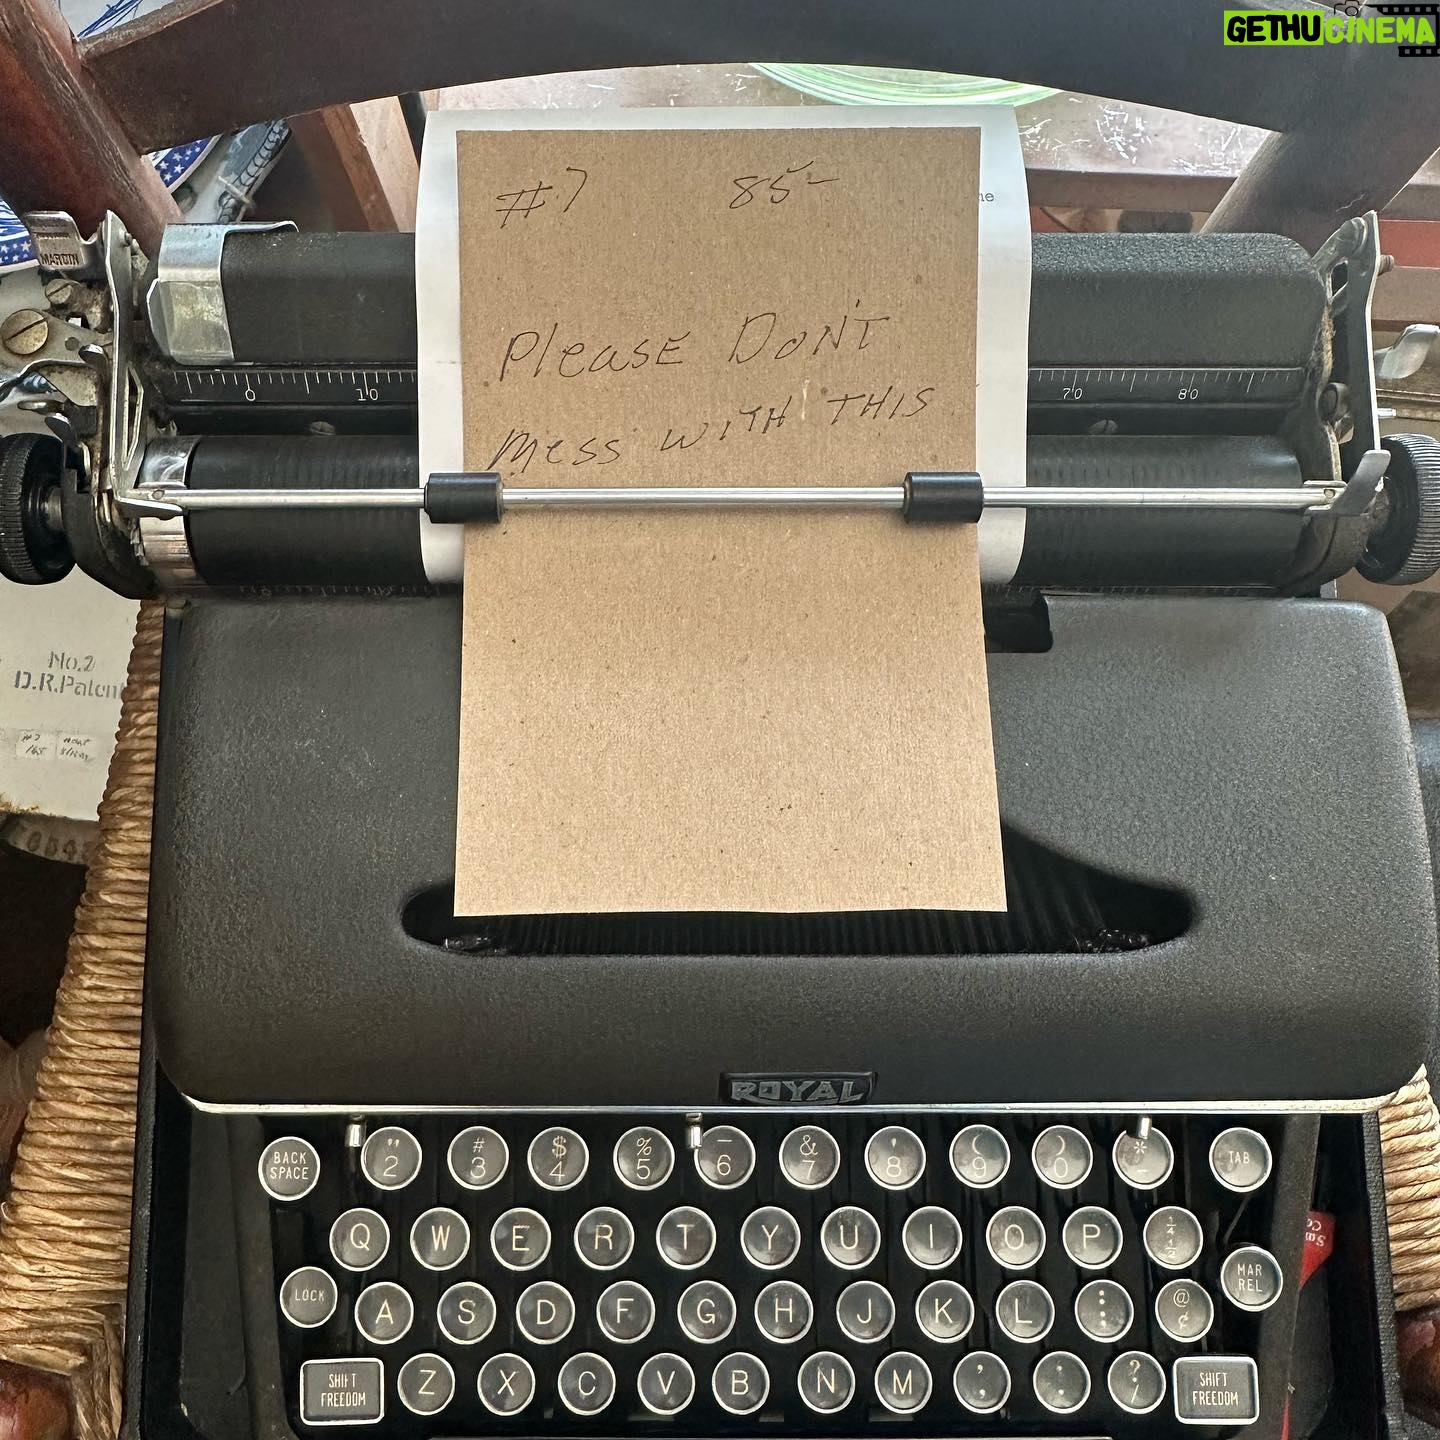 GETHUCINEMA
#7 85-
ne
Please DON'T
Mess WITH THIS
MARGIN
0 10 70 80
No.2
D.R.Patent
#7
165
ROYAL
BACK SPACE " 2 # 3 $ 4 % 5 - 6 & 7 ' 8 ( 9 ) 0 * - TAB
Q W E R T Y U I O P 1/4 1/2
MAR REL
LOCK A S D F G H J K L : ; @ ¢
SHIFT FREEDOM Z X C V B N M , , . . ? / SHIFT FREEDOM